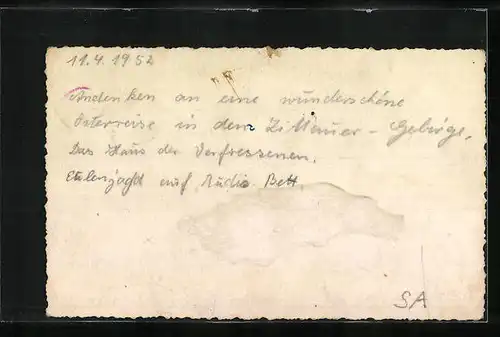 11.4.1952
Andenken an eine wunderschöne
Osterreise in dem Zittauer-Gebirge.
Das Haus der Verfressenen.
Eulenjagd auf Rudis Bett.
SA